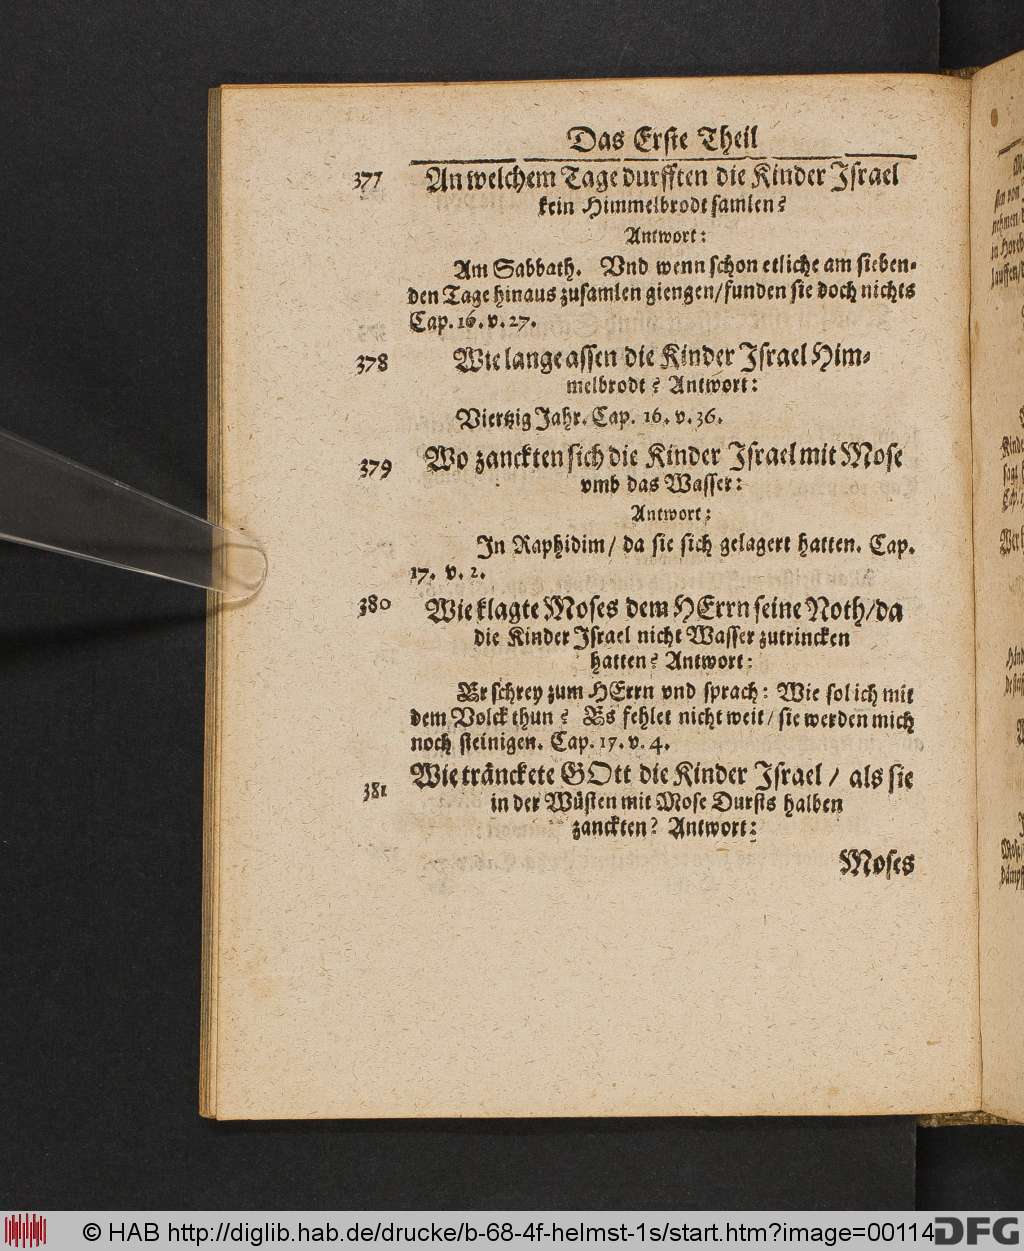 Das Erste Theil
377 An welchem Tage durfften die Kinder Israel
kein Himmelbrodt samlen?
Antwort:
Am Sabbath. Vnd wenn schon etliche am sieben-
den Tage hinaus zusamlen giengen/funden sie doch nichts
Cap. 16. v. 27.
378 Wie lange assen die Kinder Israel Him-
melbrodt? Antwort:
Viertzig Jahr. Cap. 16. v. 36.
379 Wo zanckten sich die Kinder Israel mit Mose
vmb das Wasser:
Antwort:
In Raphidim/ da sie sich gelagert hatten. Cap.
17. v. 2.
380 Wie klagte Moses dem HErrn seine Noth/da
die Kinder Israel nicht Wasser zutrincken
hatten? Antwort:
Er schrey zum HErrn vnd sprach: Wie sol ich mit
dem Volck thun? Es fehlet nicht weit/ sie werden mich
noch steinigen. Cap. 17. v. 4.
381 Wie tränckete GOtt die Kinder Israel / als sie
in der Wüsten mit Mose Dursts halben
zanckten? Antwort:
Moses
© HAB http://diglib.hab.de/drucke/b-68-4f-helmst-1s/start.htm?image=00114
DFG